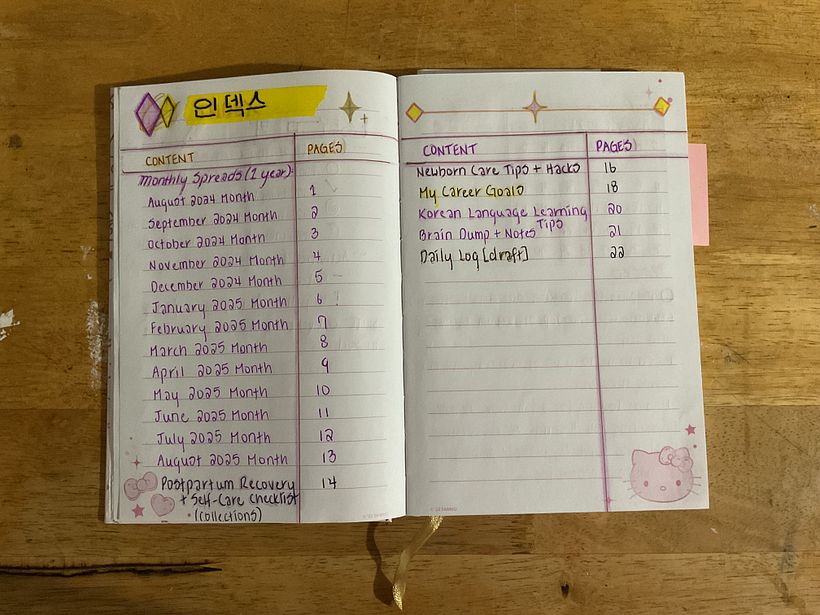 인덱스
CONTENT PAGES
Monthly Spreads (1 year):
August 2024 Month 1
September 2024 Month 2
October 2024 Month 3
November 2024 Month 4
December 2024 Month 5
January 2025 Month 6
February 2025 Month 7
March 2025 Month 8
April 2025 Month 9
May 2025 Month 10
June 2025 Month 11
July 2025 Month 12
August 2025 Month 13
Postpartum Recovery 14
+ Self-Care Checklist
(collections)
CONTENT PAGES
Newborn Care Tips + Hacks 16
My Career Goals 18
Korean Language Learning 20
Tips
Brain Dump + Notes 21
Daily Log [draft] 22